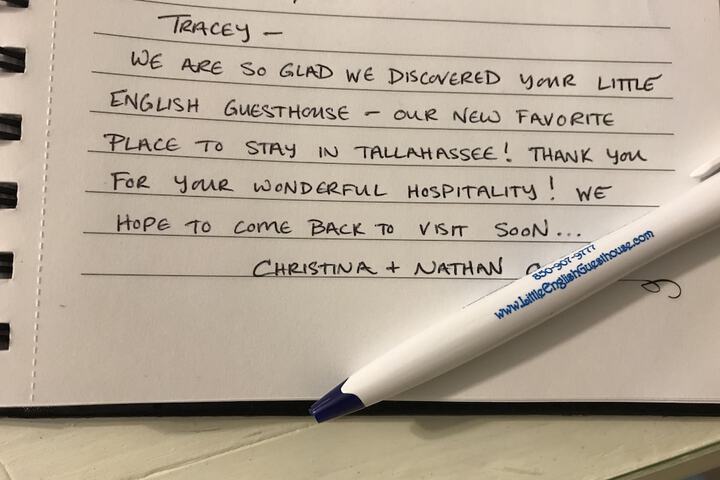 TRACEY –
WE ARE SO GLAD WE DISCOVERED YOUR LITTLE
ENGLISH GUESTHOUSE – OUR NEW FAVORITE
PLACE TO STAY IN TALLAHASSEE! THANK YOU
FOR YOUR WONDERFUL HOSPITALITY! WE
HOPE TO COME BACK TO VISIT SOON...
CHRISTINA + NATHAN
850-907-9777
www.LittleEnglishGuesthouse.com